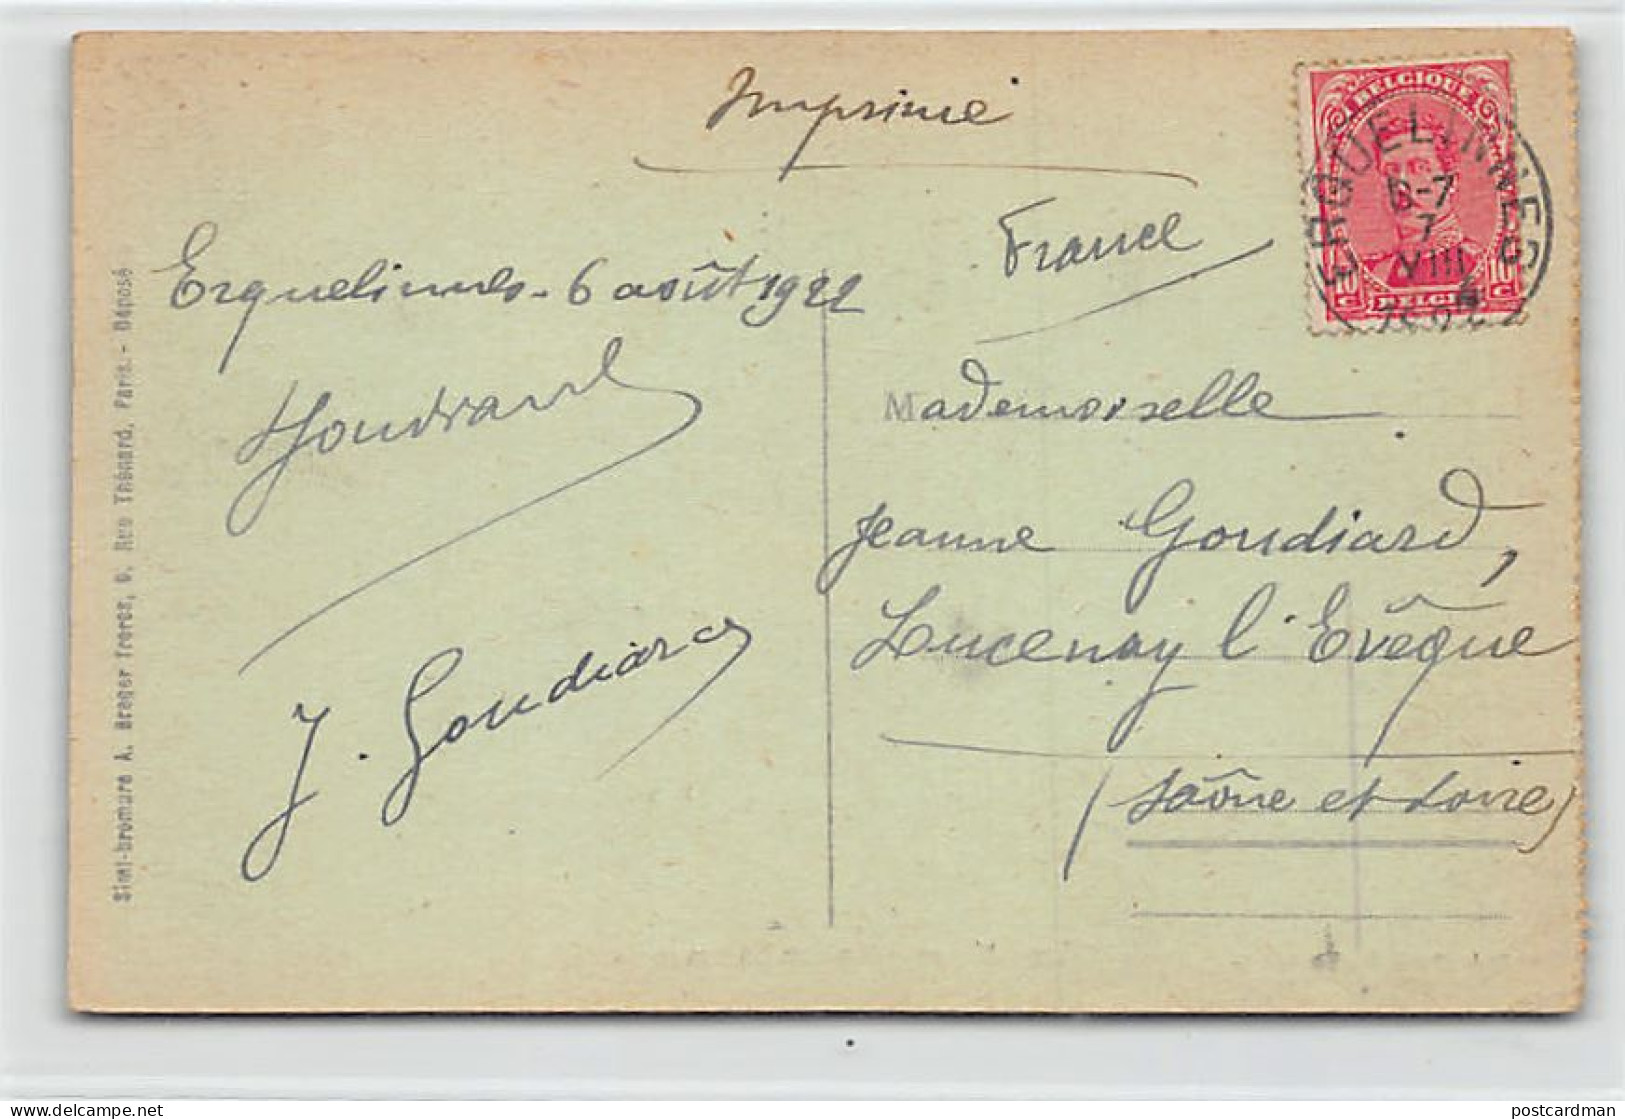 Imprimé
France
Erquelinnes - 6 août 1922
J. Goudiard
Mademoiselle
Jeanne Goudiard,
Lucenay l'Evêque
(Saône et Loire)
BELGIQUE
ERQUELINNES
7
VIII
10 C
BELGIË
10 C
Simi-bromure A. Breger frères, 9, Rue Thénard, Paris. - Déposé
postcardman